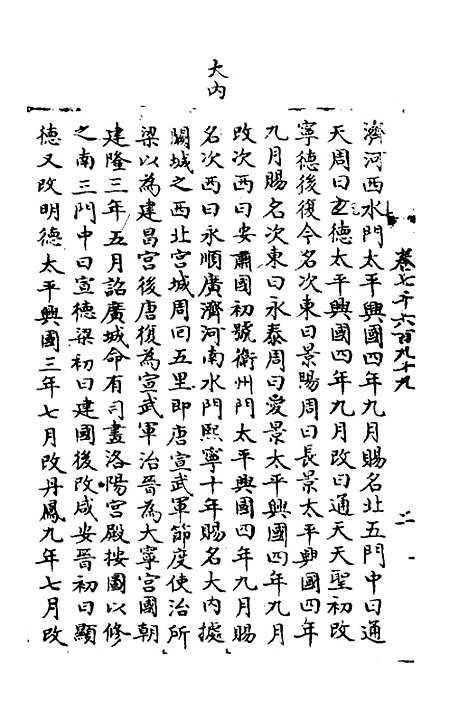 大内
卷七千六百九十九
二
濟河西水門太平興國四年九月賜名北五門中曰通
天周曰玄德太平興國四年九月改曰通天天聖初改
寧德後復今名次東曰景陽周曰長景太平興國四年
九月賜名次東曰永泰周曰愛景太平興國四年九月
改次西曰安肅國初號衛州門太平興國四年九月賜
名次西曰永順廣濟河南水門熙寧十年賜名大内據
闕城之西北宮城周回五里即唐宣武軍節度使治所
梁以為建昌宮後唐復為宣武軍治晉為大寧宮國朝
建隆三年五月詔廣城命有司畫洛陽宮殿按圖以修
之南三門中曰宣德梁初曰建國後改咸安晉初曰顯
德又改明德太平興國三年七月改丹鳳九年七月改